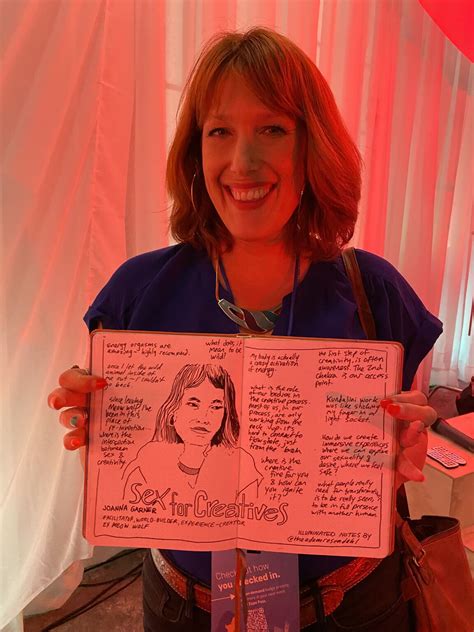 Energy orgasms are
amazing - highly recommend.
once I let the wild
animal inside of
me out - I couldn't
go back
Since leaving
Meow Wolf I've
been in this
place of
re-invention -
where is the
intersection
between
sex &
creativity
what does it
mean to be
wild?
My body is actually
a crazy activation
of energy
what is the role
of our bodies in
the creative process.
most of us, in our
process, are only
working from the
neck up. it's
hard to connect to
flow state just
from the brain
where is the
creative
fire for you
& how can
you ignite
it?
the first step of
creativity is often
awareness. The 2nd
chakra is our access
point.
Kundalini work
was like sticking
my finger in a
light socket.
How do we create
immersive experiences
where we can explore
our sexuality &
desire, where we feel
safe?
what people really
need for transformation
is to be really seen &
to be in full presence
with another human
Sex for Creatives
JOANNA GARNER
FACILITATOR, WORLD-BUILDER, EXPERIENCE-CREATOR
EX MEOW WOLF
ILLUMINATED NOTES BY
Check out
you
checked in.